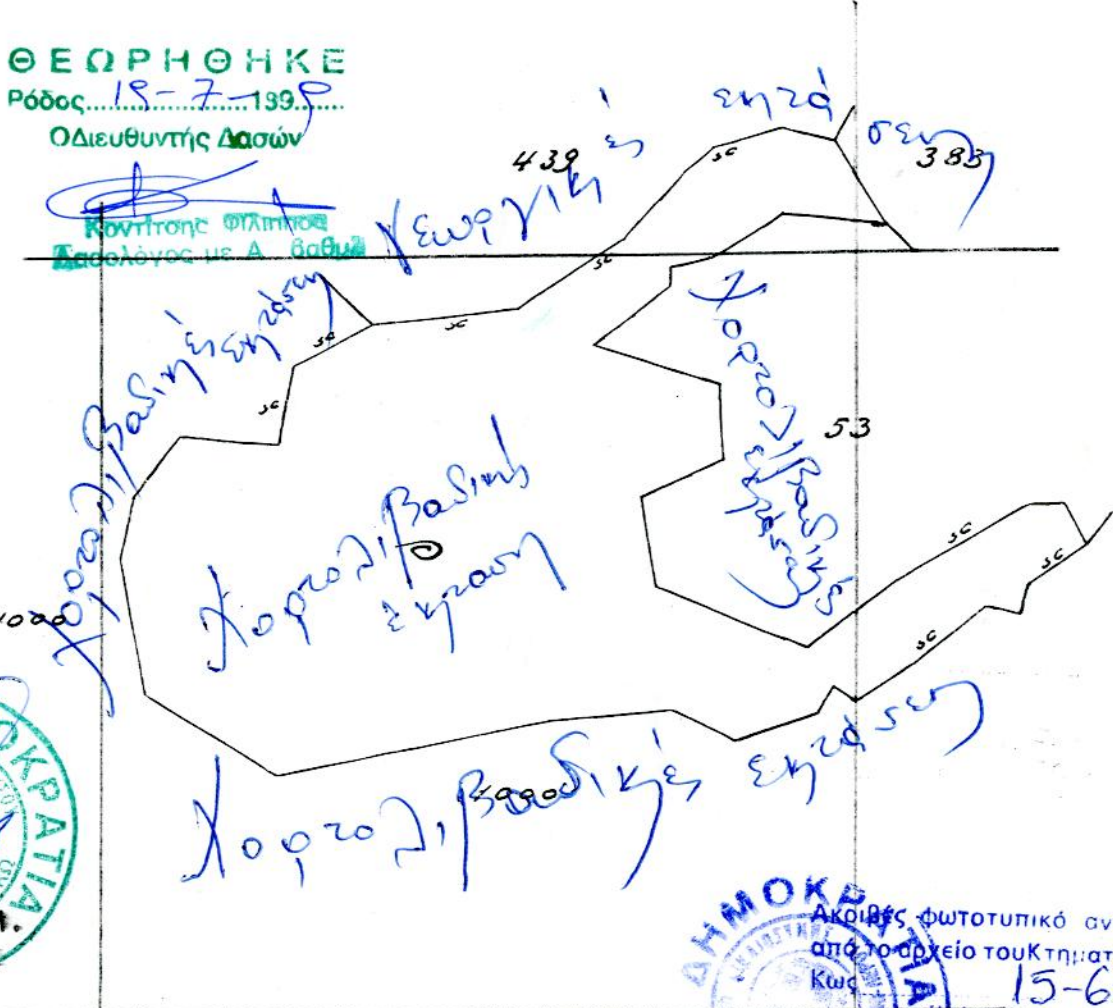 ΘΕΩΡΗΘΗΚΕ
Ρόδος 19-7-1999
Ο Διευθυντής Δασών
Κοντίτσης Φίλιππος
Δασολόγος με Α βαθμό
439
383
Γεωργικής εκτάσεις
Χορτολιβαδικής εκτάσεις
Χορτολιβαδικής
εκτάσεις
53
Χορτολιβαδική
έκταση
1000
Χορτολιβαδικής εκτάσεις
1000
ΔΗΜΟΚΡΑΤΙΑ
ΔΗΜΟΚΡΑΤΙΑ
Ακριβές φωτοτυπικό αν
από το αρχείο του Κτηματ
Κως 15-6